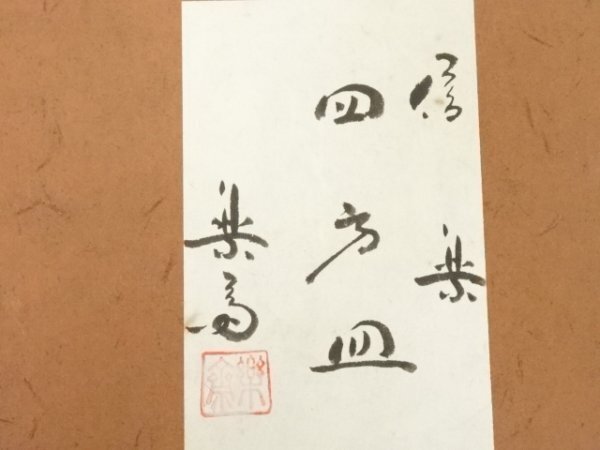 信楽
四方皿
楽斎